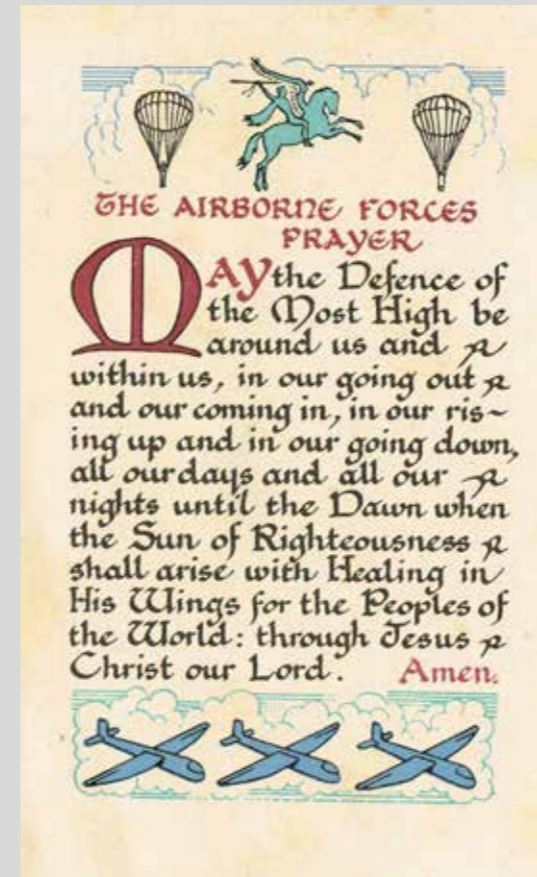 THE AIRBORNE FORCES
PRAYER
MAY the Defence of
the Most High be
around us and
within us, in our going out
and our coming in, in our ris~
ing up and in our going down,
all our days and all our
nights until the Dawn when
the Sun of Righteousness
shall arise with Healing in
His Wings for the Peoples of
the World: through Jesus
Christ our Lord. Amen.